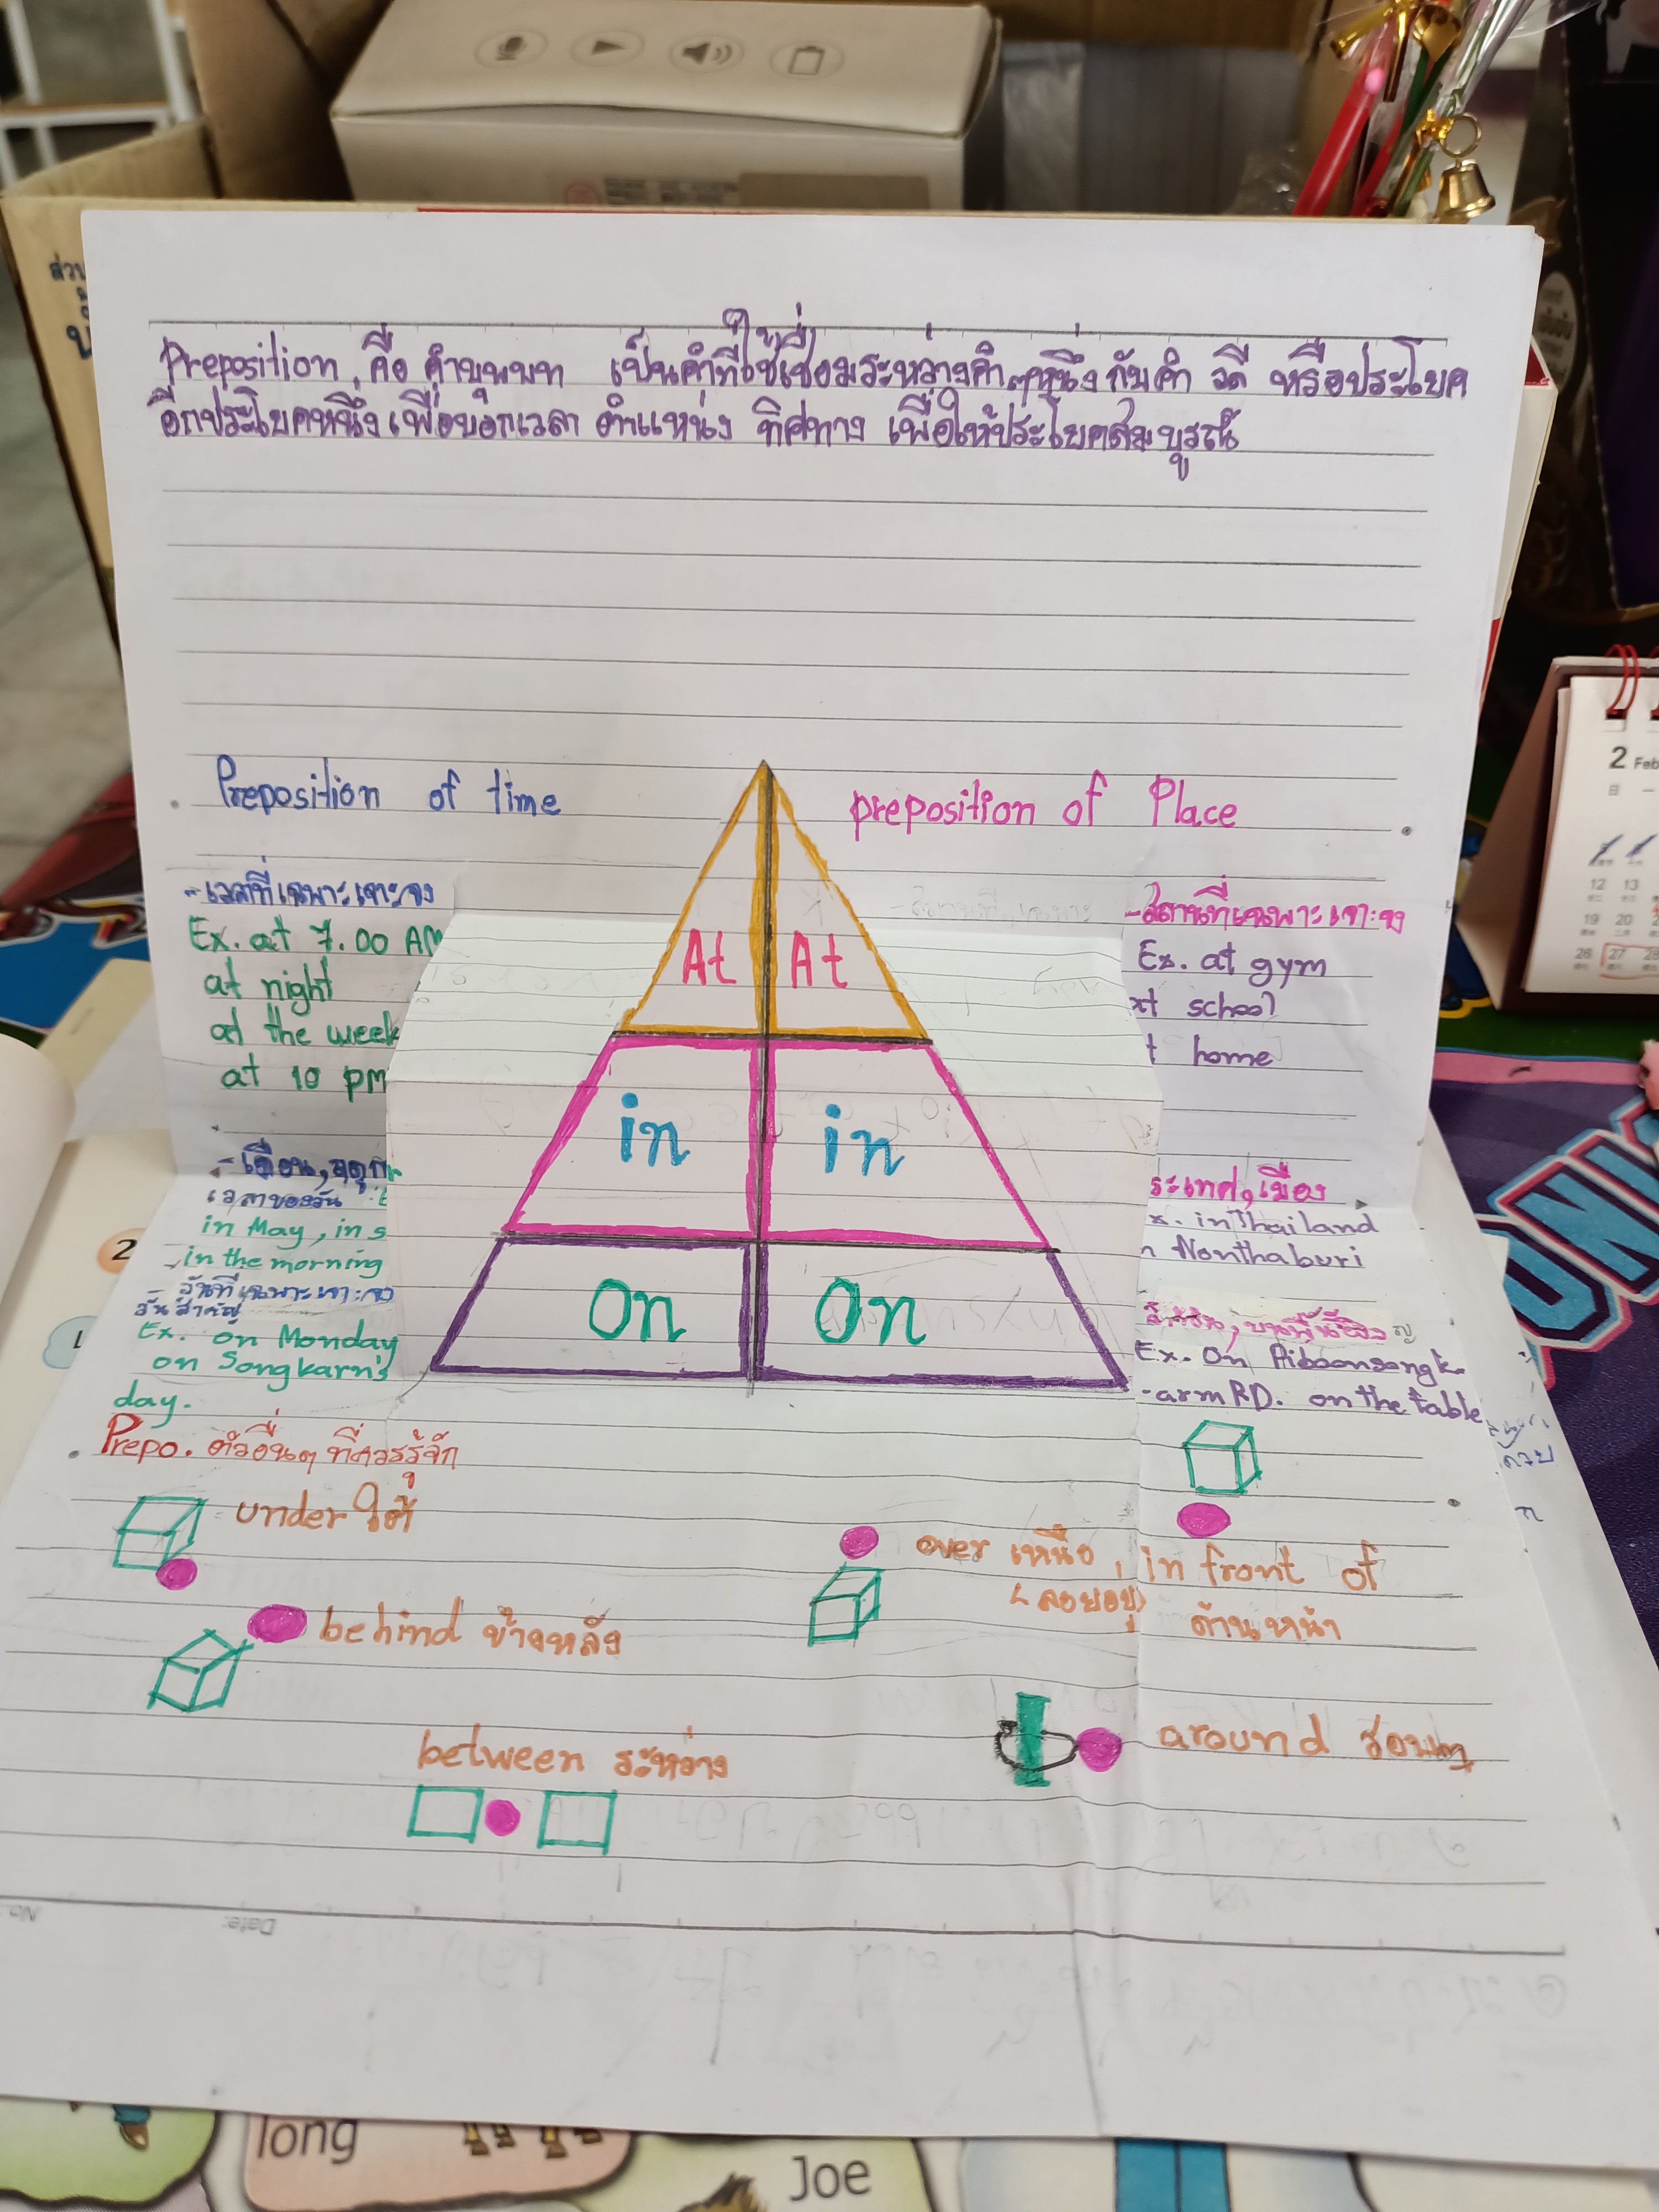 Preposition คือ คำบุพบท เป็นคำที่ใช้เชื่อมระหว่างคำๆหนึ่ง กับคำ วลี หรือประโยค
อีกประโยคหนึ่ง เพื่อบอกเวลา ตำแหน่ง ทิศทาง เพื่อให้ประโยคสมบูรณ์
Preposition of time
preposition of Place
- เวลาที่เฉพาะเจาะจง
Ex. at 7.00 AM
at night
at the week
at 10 pm
- เดือน, ฤดูก
เวลาของวัน
in May, in s
in the morning
- วันที่เฉพาะเจาะจง
วันสำคัญ
Ex. on Monday
on Songkarn's
day.
At At
in in
On On
- สถานที่เฉพาะเจาะจง
Ex. at gym
at school
t home
ระเทศ, เมือง
x. in Thailand
n Nonthaburi
บนพื้นผิว
Ex. On Piboonsongk
-arm RD. on the table
Prepo. ตัวอื่นๆ ที่ควรรู้จัก
under ใต้
over เหนือ,
(ลอยอยู่)
in front of
ด้านหน้า
behind ข้างหลัง
around รอบๆ
between ระหว่าง
Date:
No.
2 Feb
12 13
19 20
26 27 28
2
long
Joe